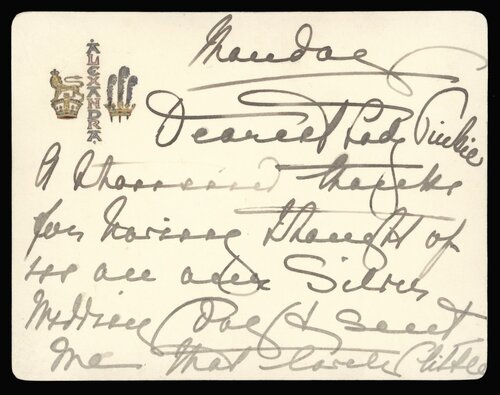 ALEXANDRA.
Monday
Dearest Lady
A thousand thanks
for having thought of
us on our Silver
Wedding Day & sent
me that lovely little